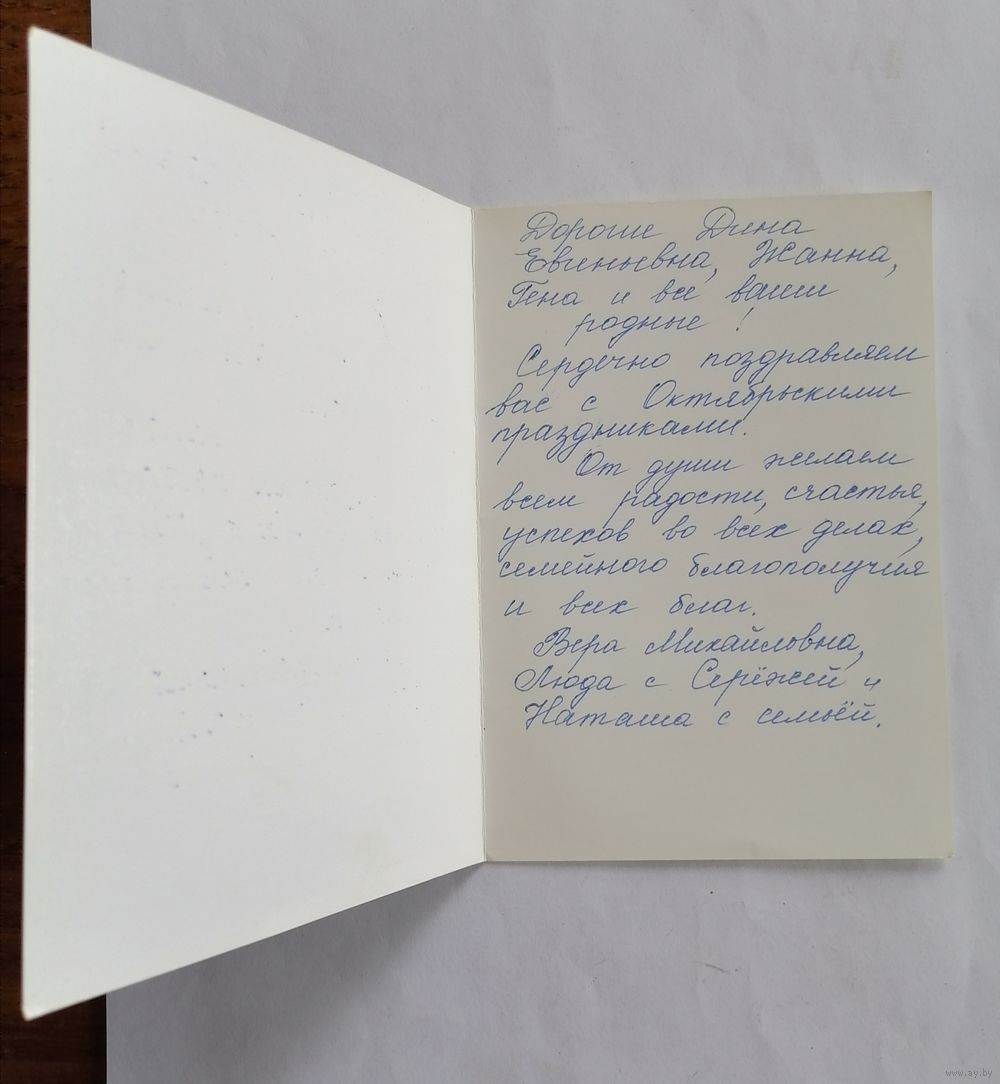 Дорогие Дина
Евгеньевна, Жанна,
Гена и все ваши
родные!
Сердечно поздравляем
вас с Октябрьскими
праздниками.
От души желаем
всем радости, счастья,
успехов во всех делах,
семейного благополучия
и всех благ.
Вера Михайловна,
Люда с Серёжей и
Наташа с семьёй.
www.ay.by